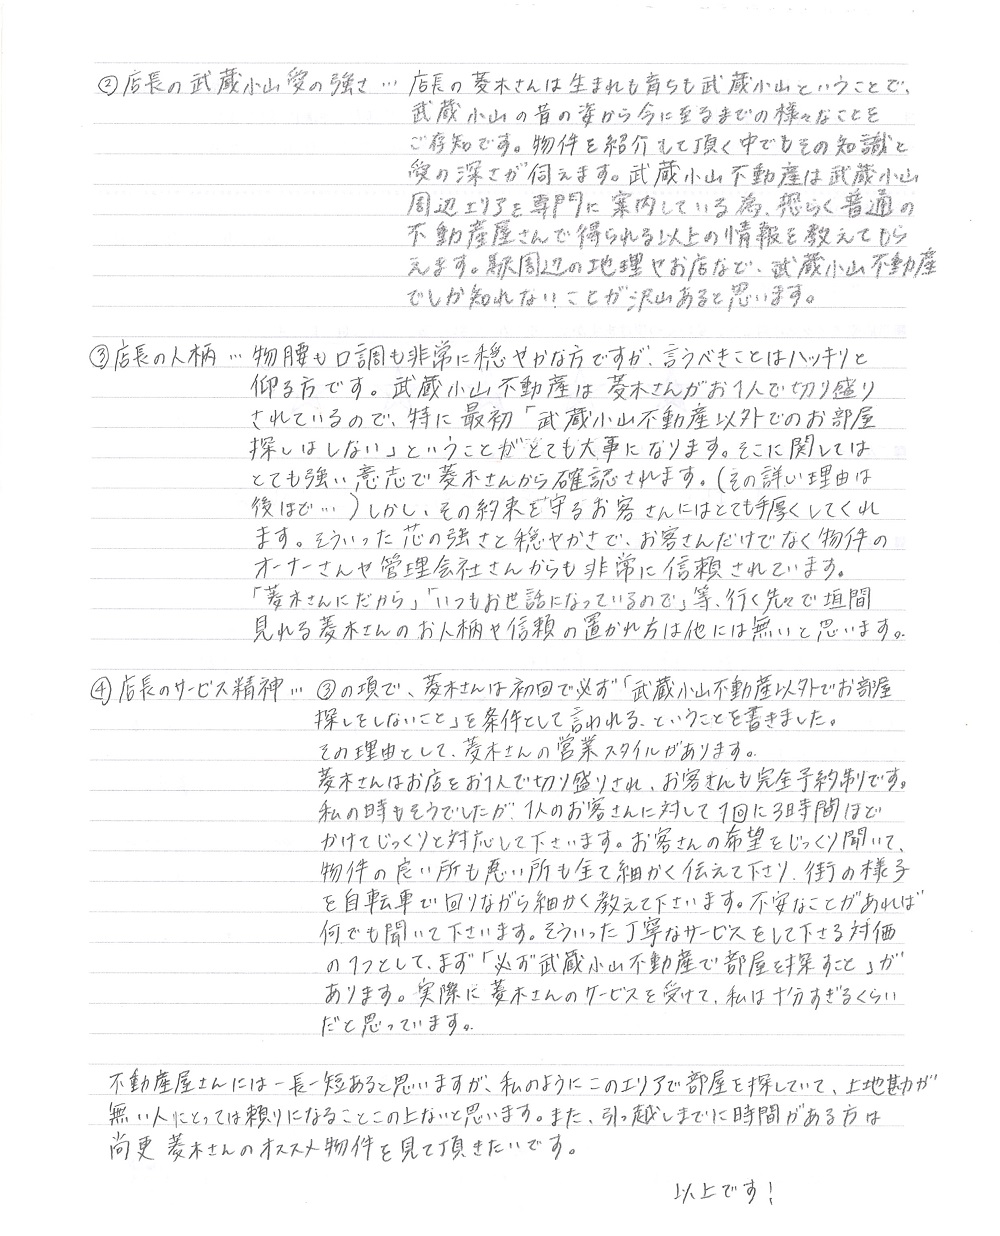 ②店長の武蔵小山愛の強さ… 店長の菱木さんは生まれも育ちも武蔵小山ということで、
武蔵小山の昔の姿から今に至るまでの様々なことを
ご存知です。物件を紹介して頂く中でもその知識と
愛の深さが伺えます。武蔵小山不動産は武蔵小山
周辺エリアを専門に案内している為、恐らく普通の
不動産屋さんで得られる以上の情報を教えてもら
えます。駅周辺の地理やお店など、武蔵小山不動産
でしか知れないことが沢山あると思います。
③店長の人柄… 物腰も口調も非常に穏やかな方ですが、言うべきことはハッキリと
仰る方です。武蔵小山不動産は菱木さんがお1人で切り盛り
されているので、特に最初「武蔵小山不動産以外でのお部屋
探しはしない」ということがとても大事になります。そこに関しては
とても強い意志で菱木さんから確認されます。(その詳しい理由は
後ほど…)しかし、その約束を守るお客さんにはとても手厚くしてくれ
ます。そういった芯の強さと穏やかさで、お客さんだけでなく物件の
オーナーさんや管理会社さんからも非常に信頼されています。
「菱木さんにだから」「いつもお世話になっているので」等、行く先々で垣間
見れる菱木さんのお人柄や信頼の置かれ方は他には無いと思います。
④店長のサービス精神… ③の項で、菱木さんは初回で必ず「武蔵小山不動産以外でお部屋
探しをしないこと」を条件として言われる、ということを書きました。
その理由として、菱木さんの営業スタイルがあります。
菱木さんはお店をお1人で切り盛りされ、お客さんも完全予約制です。
私の時もそうでしたが、1人のお客さんに対して1回に3時間ほど
かけてじっくりと対応して下さいます。お客さんの希望をじっくり聞いて、
物件の良い所も悪い所も全て細かく伝えて下さり、街の様子
を自転車で回りながら細かく教えて下さいます。不安なことがあれば
何でも聞いて下さいます。そういった丁寧なサービスをして下さる対価
の1つとして、まず「必ず武蔵小山不動産で部屋を探すこと」が
あります。実際に菱木さんのサービスを受けて、私は十分すぎるくらい
だと思っています。
不動産屋さんには一長一短あると思いますが、私のようにこのエリアで部屋を探していて、土地勘が
無い人にとっては頼りになることこの上ないと思います。また、引っ越しまでに時間がある方は
尚更菱木さんのオススメ物件を見て頂きたいです。
以上です!